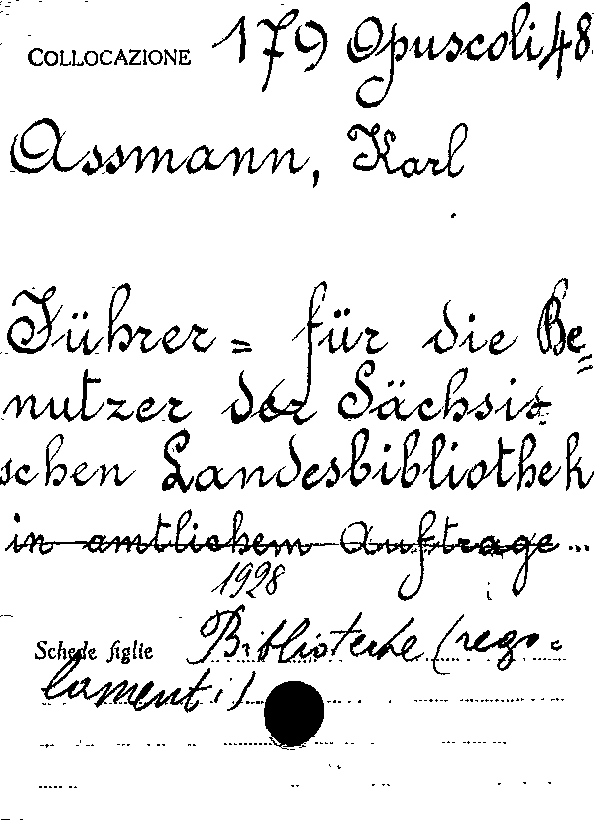 COLLOCAZIONE 179 Opuscoli, 48.
Assmann, Karl
Führer = für die Be=
nutzer der Sächsi=
schen Landesbibliothek
in amtlichem Auftrage ...
1928
Schede figlie Biblioteche (rego=
lamenti)